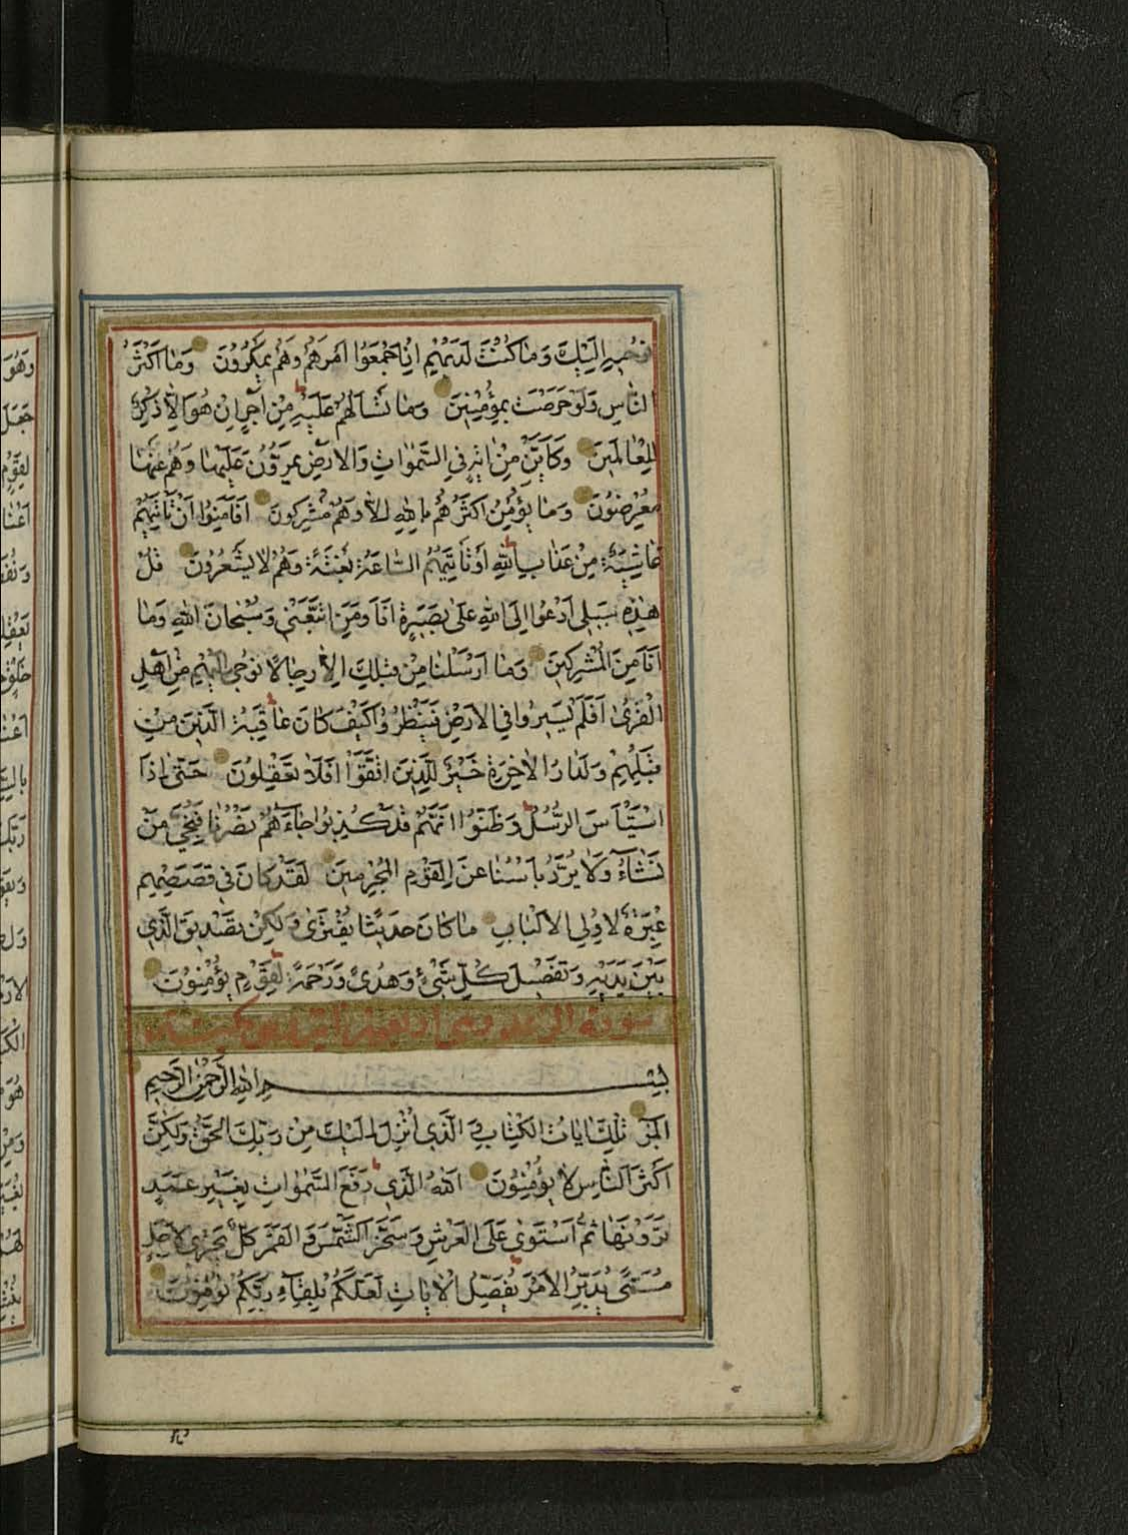 نُوحِيهِ إِلَيْكَ وَمَا كُنْتَ لَدَيْهِمْ إِذْ أَجْمَعُوا أَمْرَهُمْ وَهُمْ يَمْكُرُونَ وَمَا أَكْثَرُ
النَّاسِ وَلَوْ حَرَصْتَ بِمُؤْمِنِينَ وَمَا تَسْأَلُهُمْ عَلَيْهِ مِنْ أَجْرٍ إِنْ هُوَ إِلَّا ذِكْرٌ
لِلْعَالَمِينَ وَكَأَيِّنْ مِنْ آيَةٍ فِي السَّمٰوَاتِ وَالْأَرْضِ يَمُرُّونَ عَلَيْهَا وَهُمْ عَنْهَا
مُعْرِضُونَ وَمَا يُؤْمِنُ أَكْثَرُهُمْ بِاللّٰهِ إِلَّا وَهُمْ مُشْرِكُونَ أَفَأَمِنُوا أَنْ تَأْتِيَهُمْ
غَاشِيَةٌ مِنْ عَذَابِ اللّٰهِ أَوْ تَأْتِيَهُمُ السَّاعَةُ بَغْتَةً وَهُمْ لَا يَشْعُرُونَ قُلْ
هٰذِهِ سَبِيلِي أَدْعُوا إِلَى اللّٰهِ عَلَى بَصِيرَةٍ أَنَا وَمَنِ اتَّبَعَنِي وَسُبْحَانَ اللّٰهِ وَمَا
أَنَا مِنَ الْمُشْرِكِينَ وَمَا أَرْسَلْنَا مِنْ قَبْلِكَ إِلَّا رِجَالًا نُوحِي إِلَيْهِمْ مِنْ أَهْلِ
الْقُرَىٰ أَفَلَمْ يَسِيرُوا فِي الْأَرْضِ فَيَنْظُرُوا كَيْفَ كَانَ عَاقِبَةُ الَّذِينَ مِنْ
قَبْلِهِمْ وَلَدَارُ الْآخِرَةِ خَيْرٌ لِلَّذِينَ اتَّقَوْا أَفَلَا تَعْقِلُونَ حَتَّى إِذَا
اسْتَيْأَسَ الرُّسُلُ وَظَنُّوا أَنَّهُمْ قَدْ كُذِبُوا جَاءَهُمْ نَصْرُنَا فَنُجِّيَ مَنْ
نَشَاءُ وَلَا يُرَدُّ بَأْسُنَا عَنِ الْقَوْمِ الْمُجْرِمِينَ لَقَدْ كَانَ فِي قَصَصِهِمْ
عِبْرَةٌ لِأُولِي الْأَلْبَابِ مَا كَانَ حَدِيثًا يُفْتَرَى وَلَكِنْ تَصْدِيقَ الَّذِي
بَيْنَ يَدَيْهِ وَتَفْصِيلَ كُلِّ شَيْءٍ وَهُدًى وَرَحْمَةً لِقَوْمٍ يُؤْمِنُونَ
سورة الرعد
بِسْمِ اللّٰهِ الرَّحْمٰنِ الرَّحِيمِ
الٓمٓرٰ تِلْكَ آيَاتُ الْكِتَابِ وَالَّذِي أُنْزِلَ إِلَيْكَ مِنْ رَبِّكَ الْحَقُّ وَلَكِنَّ
أَكْثَرَ النَّاسِ لَا يُؤْمِنُونَ اللّٰهُ الَّذِي رَفَعَ السَّمٰوَاتِ بِغَيْرِ عَمَدٍ
تَرَوْنَهَا ثُمَّ اسْتَوَى عَلَى الْعَرْشِ وَسَخَّرَ الشَّمْسَ وَالْقَمَرَ كُلٌّ يَجْرِي لِأَجَلٍ
مُسَمًّى يُدَبِّرُ الْأَمْرَ يُفَصِّلُ الْآيَاتِ لَعَلَّكُمْ بِلِقَاءِ رَبِّكُمْ تُوقِنُونَ